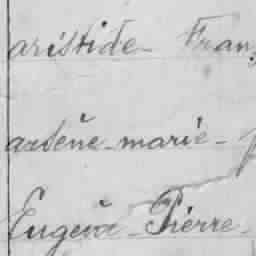 aristide - Fran
arsène - marie -
Eugène - Pierre -